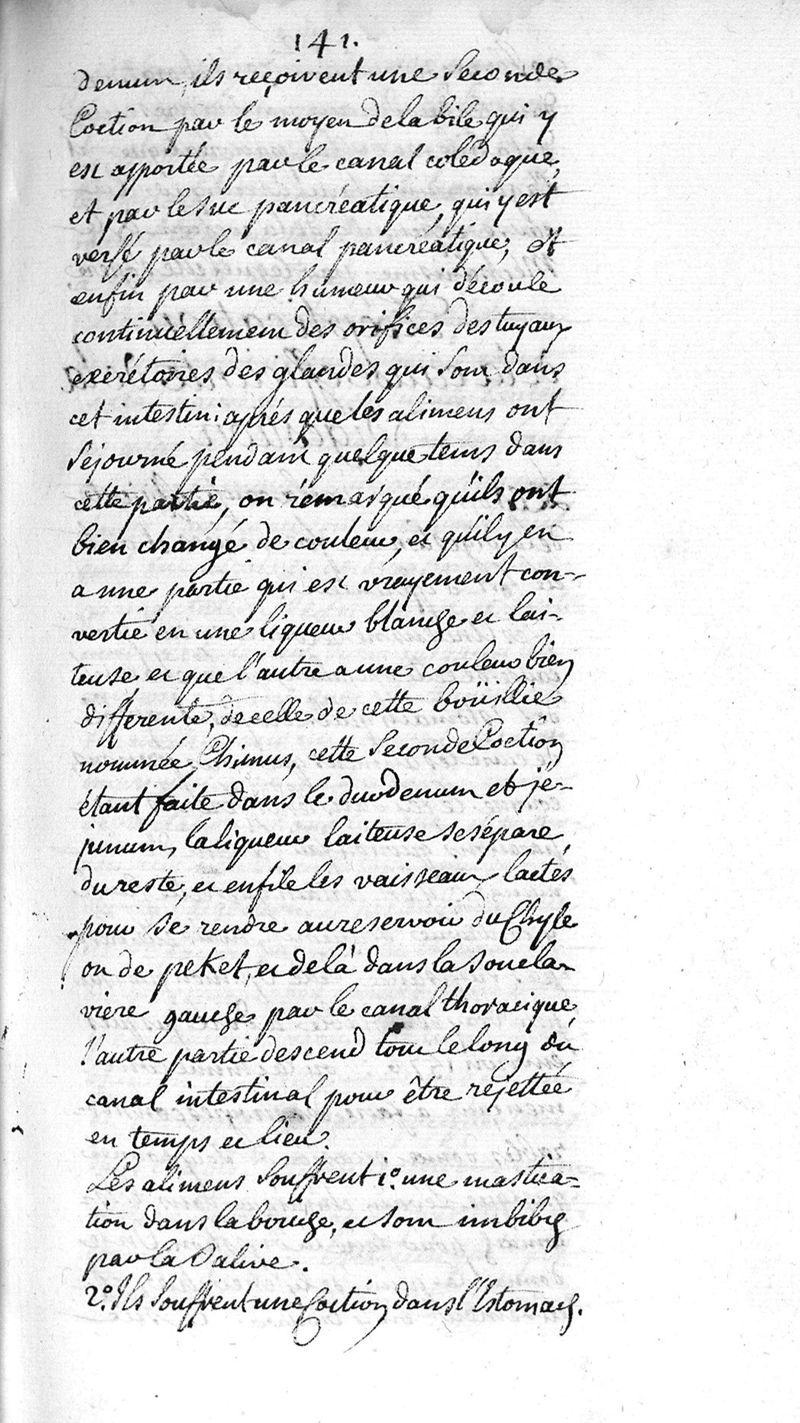 141.
denum, ils reçoivent une seconde
Coction par le moyen de la bile qui y
est apportée par le canal colédoque,
et par le suc pancréatique, qui y est
versé par le canal pancréatique, et
enfin par une humeur qui découle
continuellement des orifices des tuyaux
excrétoires des glandes qui sont dans
cet intestin: aprés que les alimens ont
séjourné pendant quelque tems dans
cette partie, on remarque qu'ils ont
bien changé de couleur, et qu'il y en
a une partie qui est vrayement con-
vertie en une liqueur blanche et lai-
teuse et que l'autre a une couleur bien
differente, de celle de cette boüillie
nommée Chimus, cette seconde Coction
étant faite dans le duodenum et jé-
junum, la liqueur laiteuse se sépare
du reste, et enfile les vaisseaux lactés
pour se rendre au reservoir du Chyle
ou de peket, et de là dans la soucla-
viere gauche par le canal thoracique,
l'autre partie descend tout le long du
canal intestinal pour être rejettée
en temps et lieu.
Les alimens souffrent 1.° une mastica-
tion dans la bouche, et sont imbibés
par la Salive.
2.° Ils souffrent une Coction dans l'Estomach.